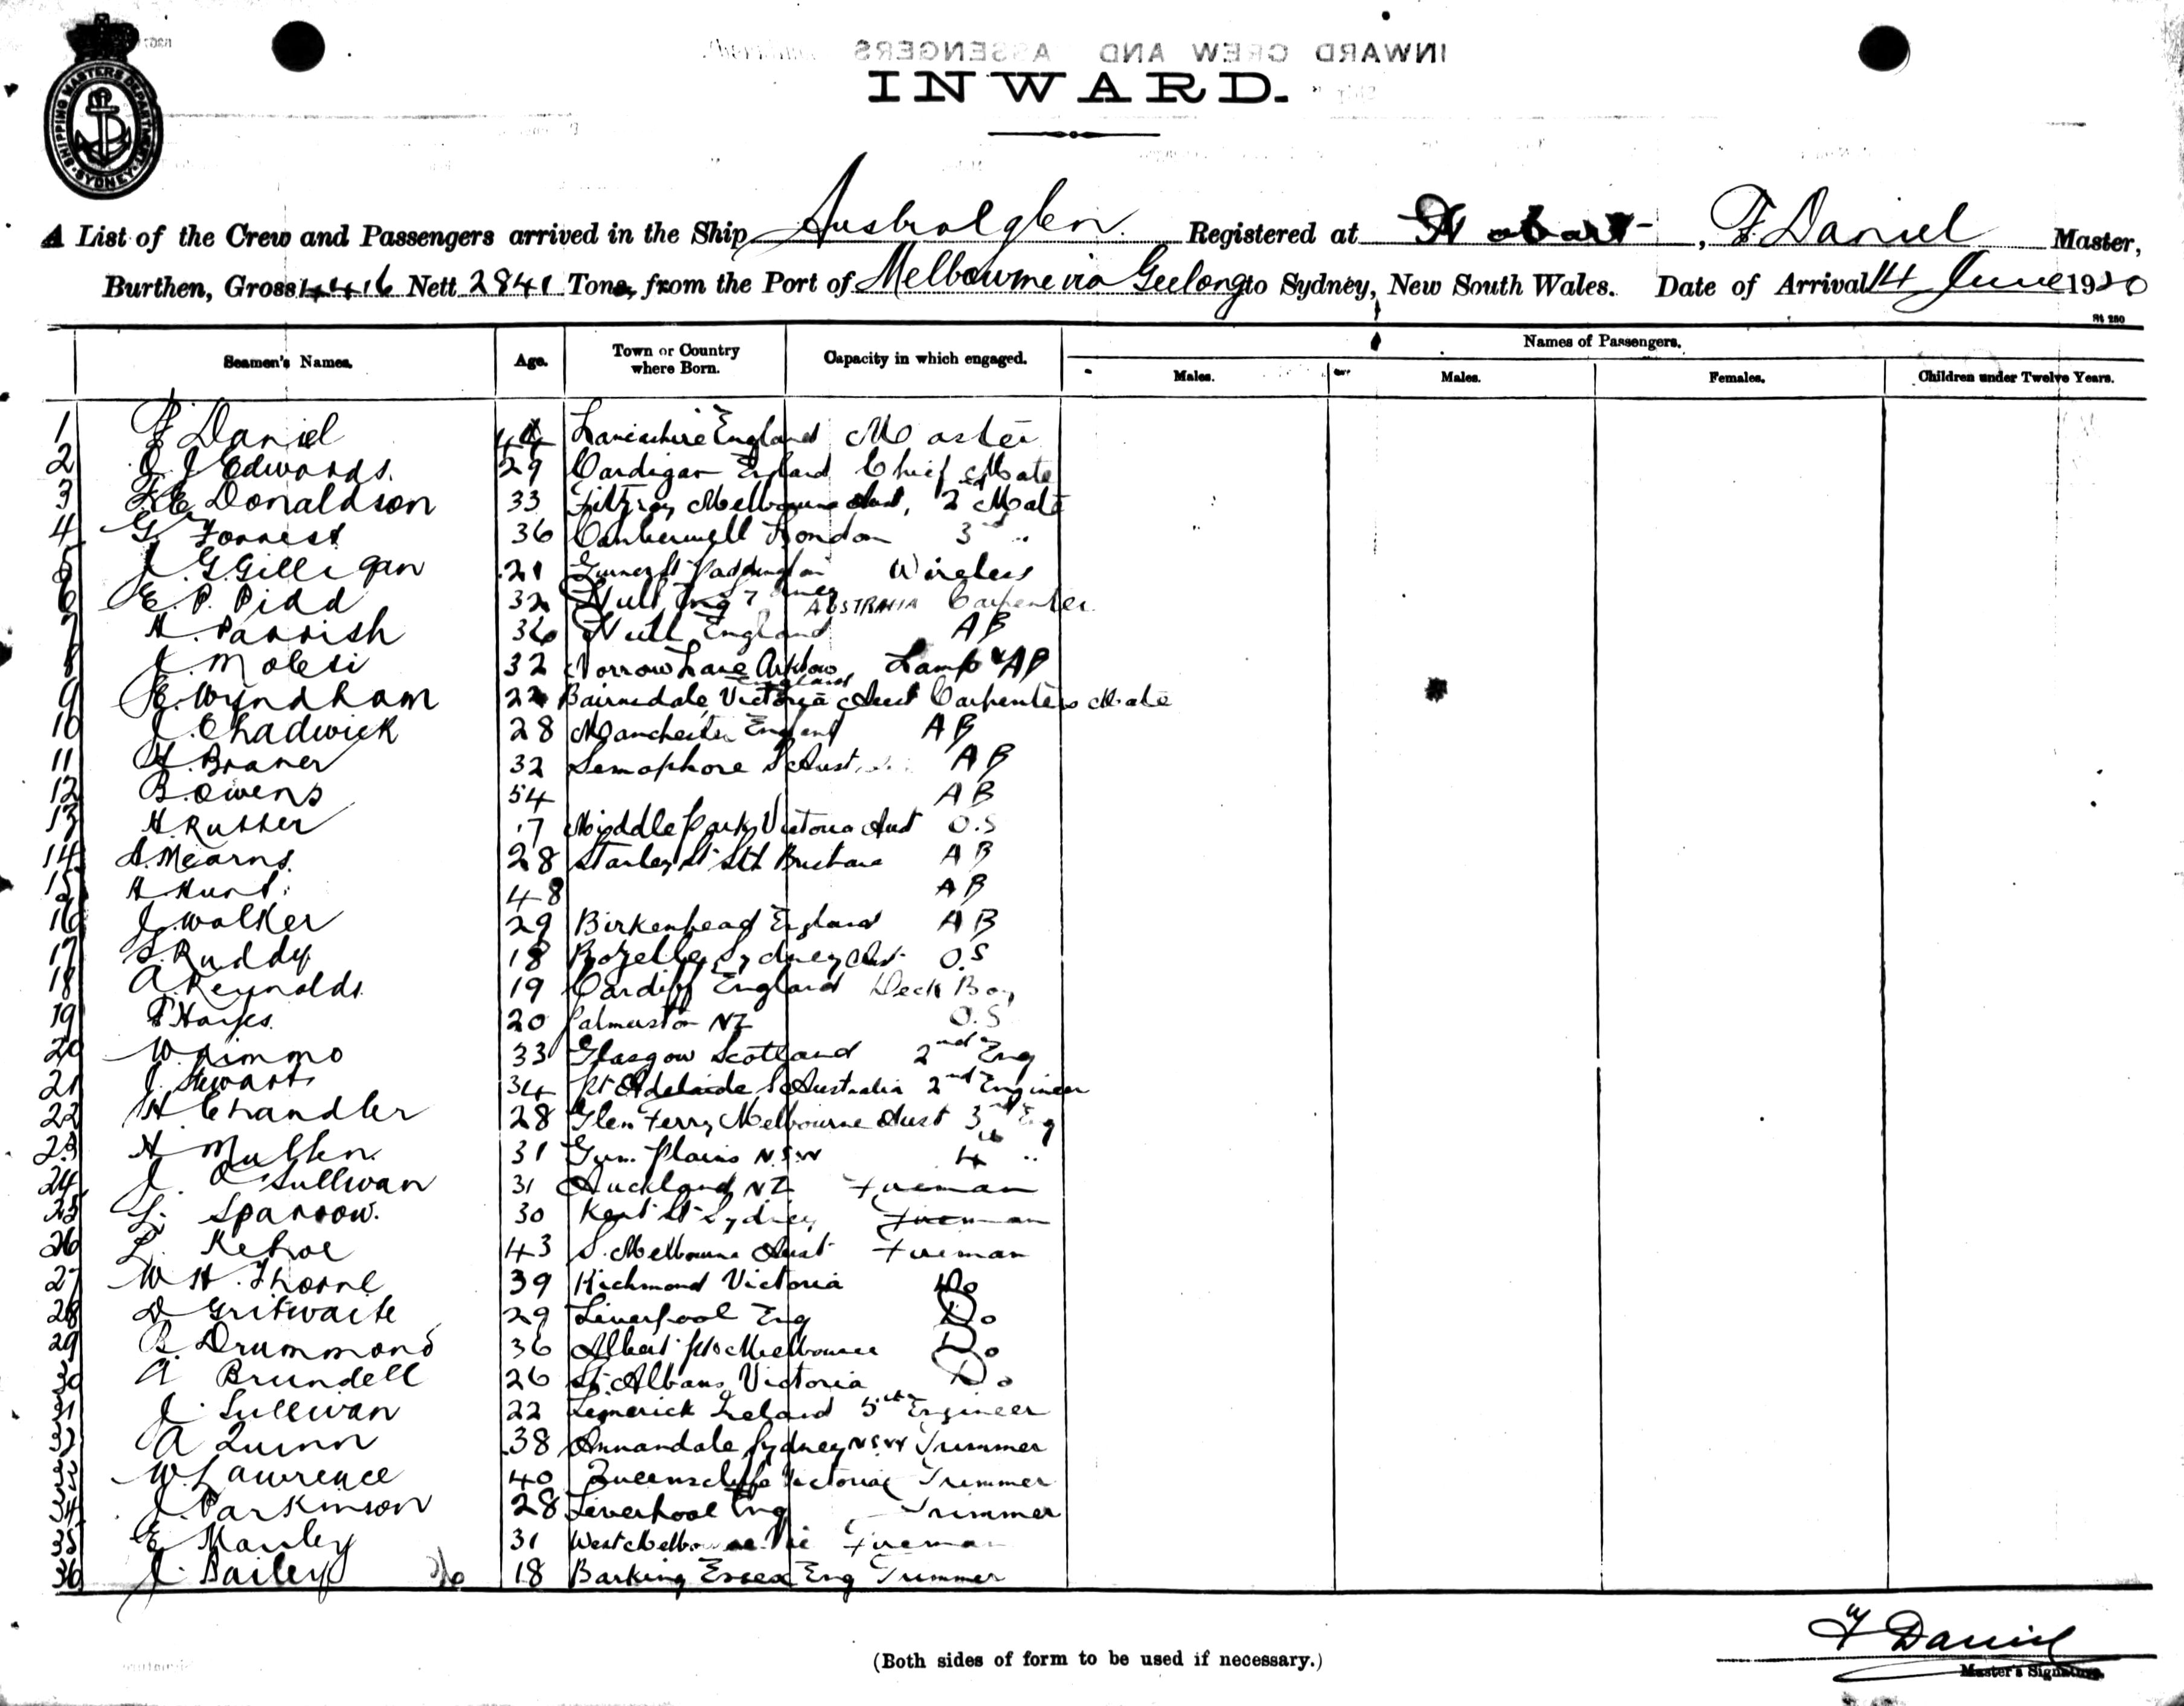 SHIPPING MASTERS DEPARTMENT SYDNEY
INWARD CREW AND PASSENGERS
INWARD.
A List of the Crew and Passengers arrived in the Ship Australglen. Registered at Hobart, F Daniel Master,
Burthen, Gross 4416 Nett 2841 Tons, from the Port of Melbourne via Geelong to Sydney, New South Wales. Date of Arrival 14 June 1920
Seamen's Names. Age. Town or Country where Born. Capacity in which engaged. Names of Passengers.
Males. Males. Females. Children under Twelve Years.
1 F Daniel 44 Lancashire England Master
2 J Edwards. 29 Cardigan England Chief Mate
3 Donaldson 33 Fitzroy Melbourne Aust, 2 Mate
4 G Forrest 36 Camberwell London 3rd "
5 J G Gilligan 21 Paddington Sydney Wireless
6 E. P. Pidd 32 Hull Eng AUSTRALIA Carpenter
7 H. Parrish 36 Hull England AB
8 J Molesi 32 Norrow Lane Arklow England Lamp & AB
9 E. Wyndham 22 Bairnsdale Victoria Aust Carpenters Mate
10 J. Chadwick 28 Manchester England AB
11 H. Braner 32 Semaphore S Aust AB
12 B. Owens 54 AB
13 H. Rusher 17 Middle Park Victoria Aust O.S
14 A. Mearns. 28 Stanley St Sth Brisbane AB
15 H. Hunt. 48 AB
16 J. Walker 29 Birkenhead England AB
17 S. Ruddy 18 Rozelle Sydney Aust O.S
18 A. Reynolds. 19 Cardiff England Deck Boy
19 P Hayes. 20 Palmerston NZ O.S
20 W. Nimmo 33 Glasgow Scotland 2nd Eng
21 J. Stewart 34 Pt Adelaide S Australia 2nd Engineer
22 H Chandler 28 Glen Ferry Melbourne Aust 3rd Eng
23 H Mullen. 31 Gum Plains N.S.W 4th "
24 J. O'Sullivan 31 Auckland NZ Fireman
25 L. Sparrow. 30 Kent St Sydney Fireman
26 L. Kehoe 43 S. Melbourne Aust Fireman
27 W H. Thorne 39 Richmond Victoria Do
28 D Gritwaite 29 Liverpool Eng Do
29 R. Drummond 36 Albert Melbourne Do
30 A Brundell 26 St Albans Victoria Do
31 J. Sullivan 22 Limerick Ireland 5th Engineer
32 A Quinn 38 Annandale Sydney NSW Trimmer
33 W. Lawrence 40 Queenscliffe Victoria Trimmer
34 J. Parkinson 28 Liverpool Eng Trimmer
35 E Manley 31 West Melbourne Vic Fireman
36 J. Bailey 18 Barking Essex Eng Trimmer
36
(Both sides of form to be used if necessary.)
F Daniel
Master's Signature.